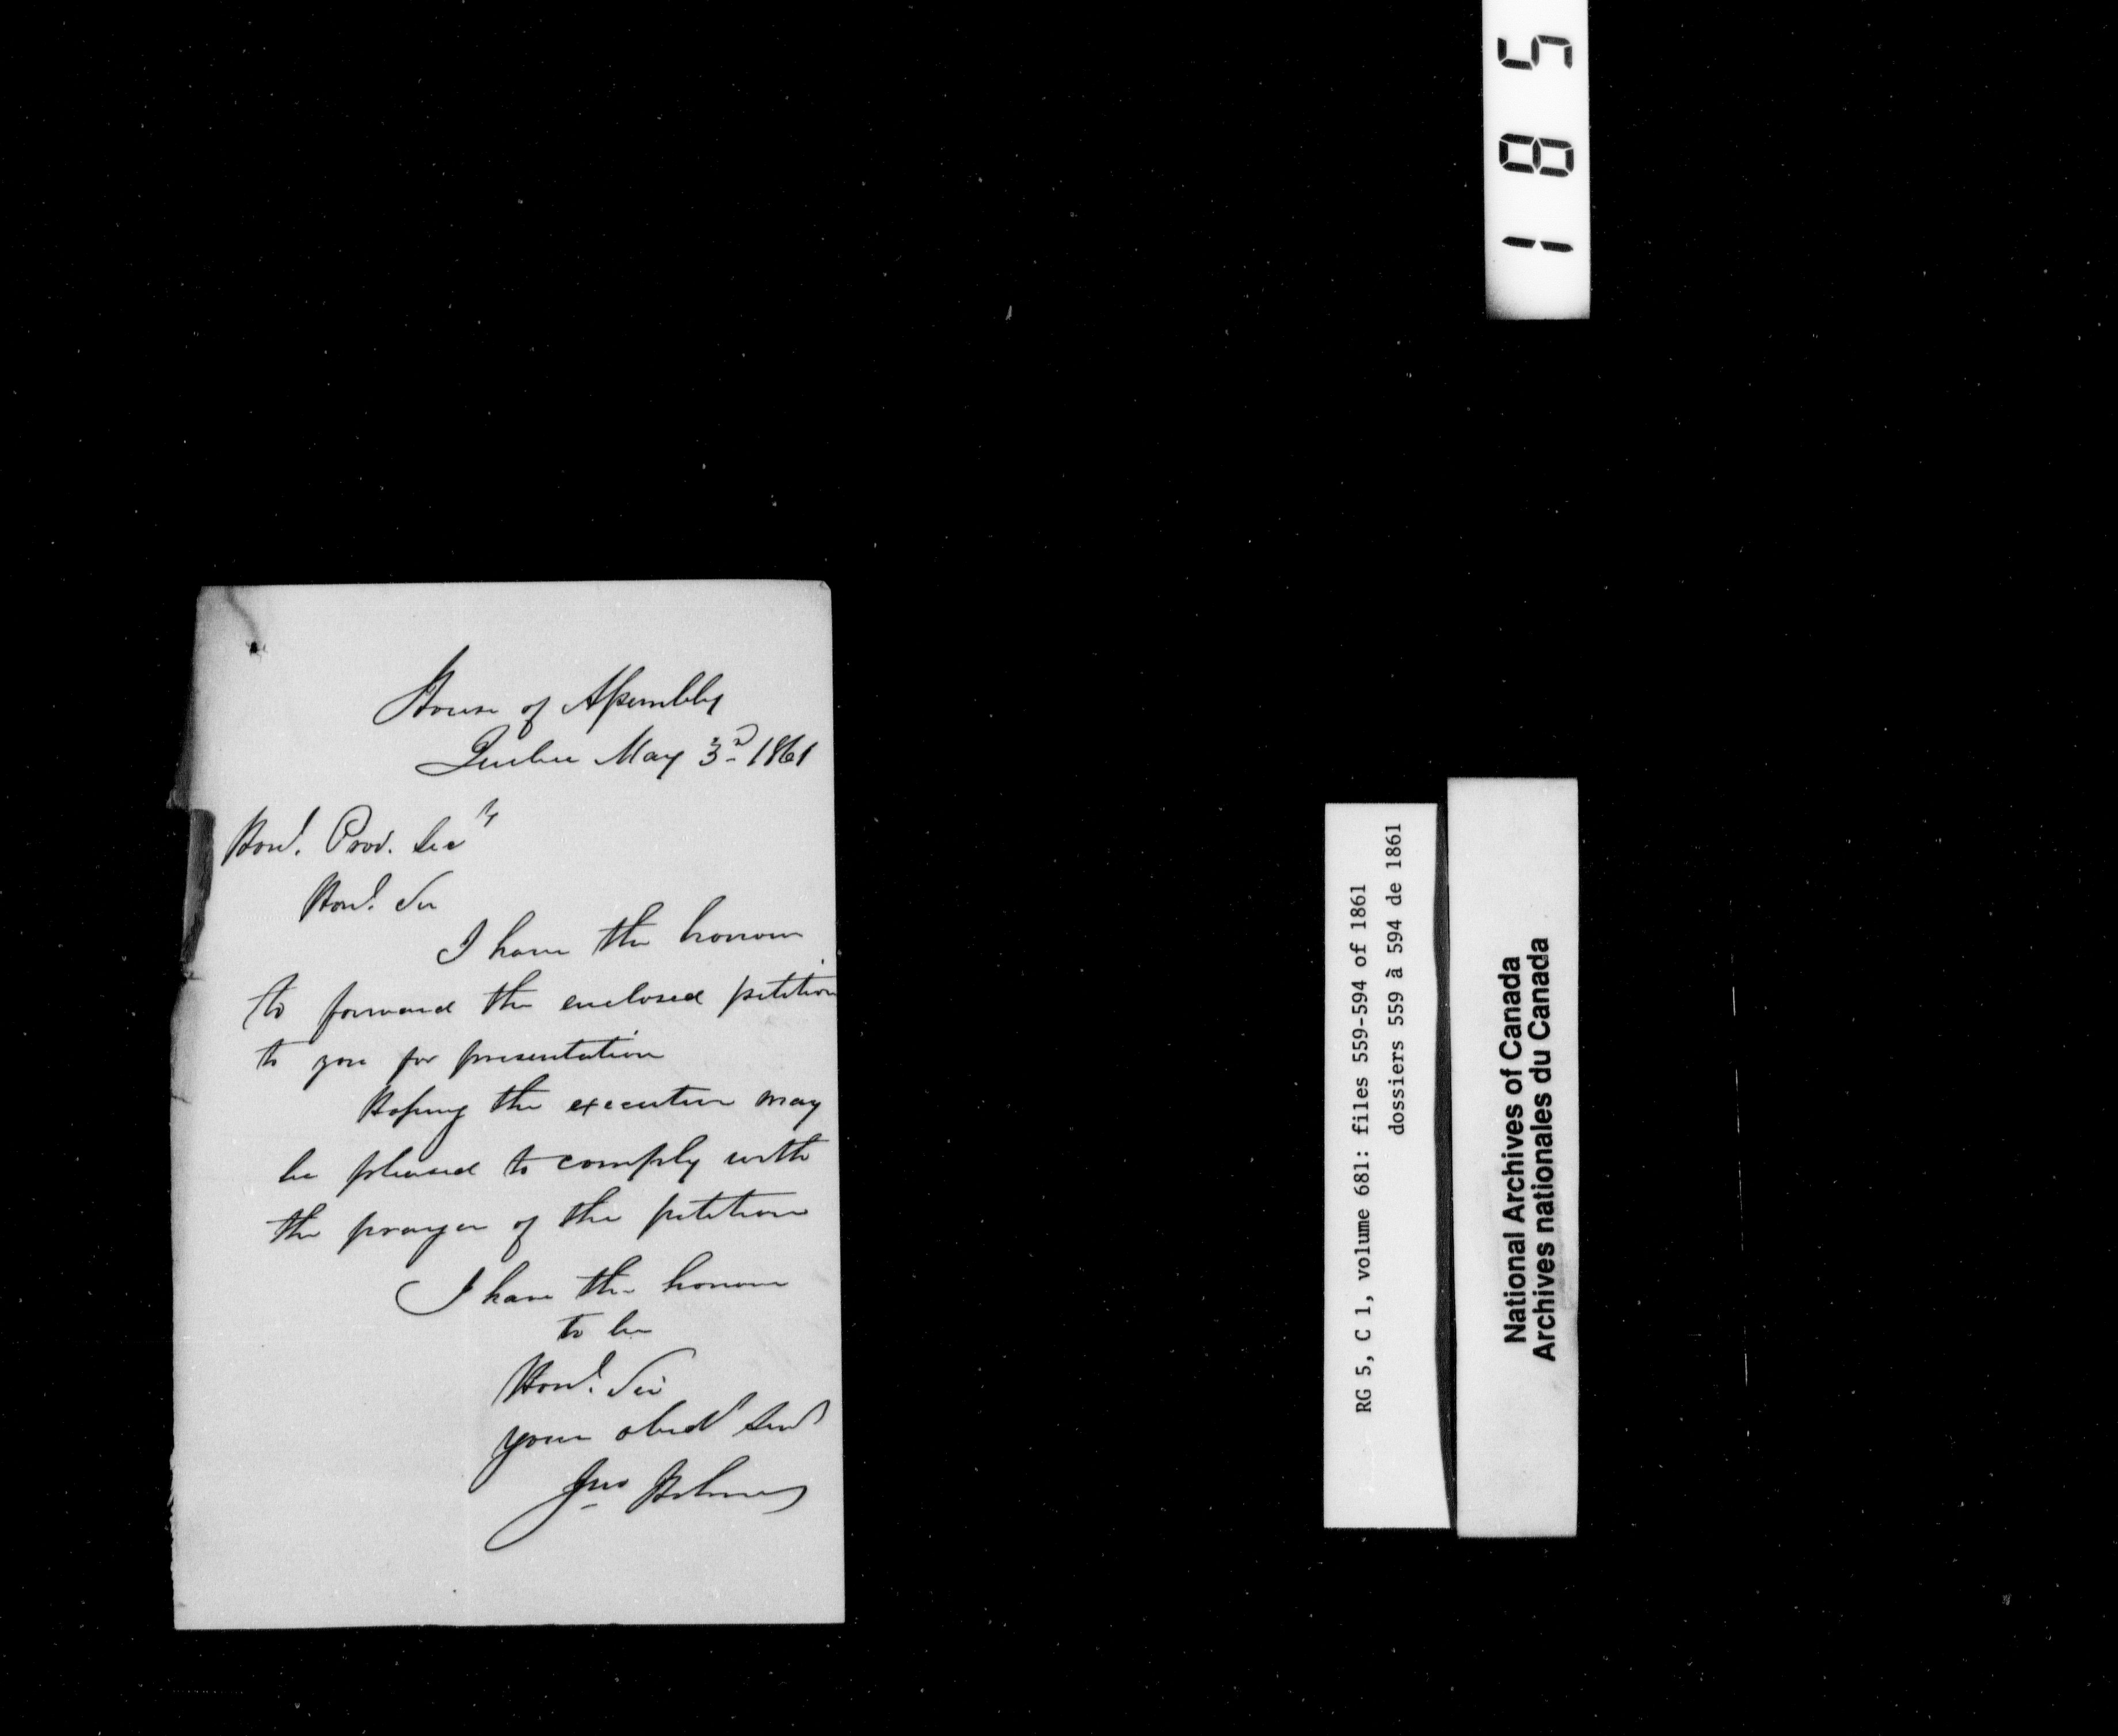 House of Assembly
Quebec May 3rd 1861
Honl. Prov. Secry
Honl. Sir
I have the honour
to forward the enclosed petition
to you for presentation
Hoping the executive may
be pleased to comply with
the prayer of the petition
I have the honour
to be
Honl. Sir
your obedt Servt
Jno Holmes
1 8 5
RG 5, C 1, volume 681: files 559-594 of 1861
dossiers 559 à 594 de 1861
National Archives of Canada
Archives nationales du Canada